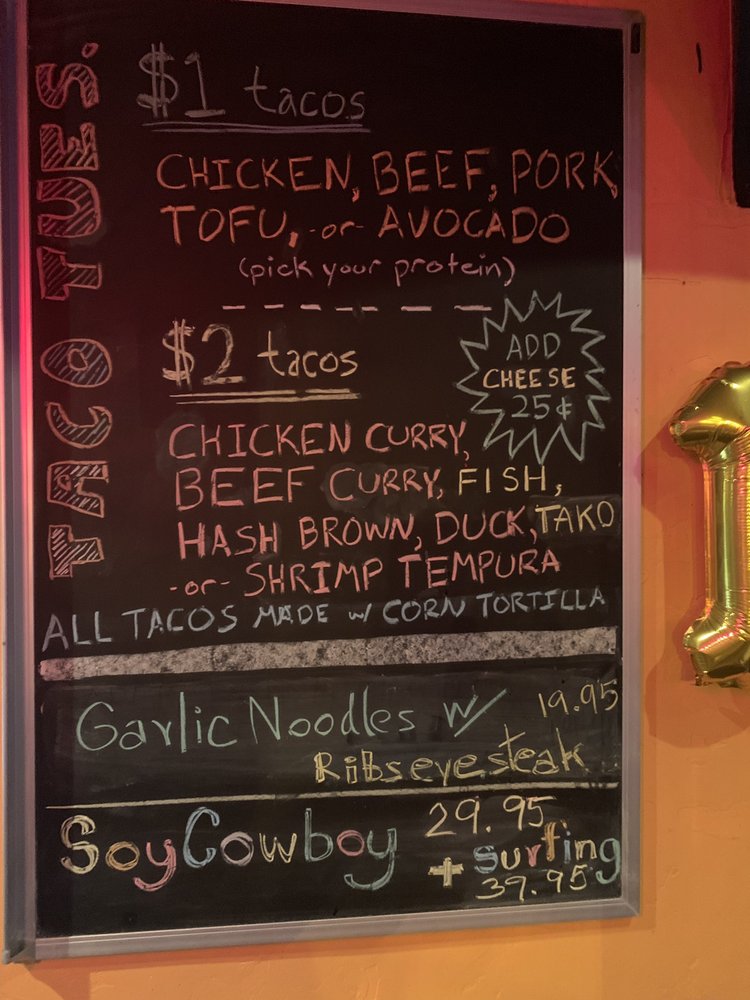 TACO TUES.
$1 tacos
CHICKEN, BEEF, PORK,
TOFU, -or- AVOCADO
(pick your protein)
$2 tacos
ADD
CHEESE
25¢
CHICKEN CURRY,
BEEF CURRY, FISH,
HASH BROWN, DUCK, TAKO
-or- SHRIMP TEMPURA
ALL TACOS MADE w/ CORN TORTILLA
Garlic Noodles w/ 19.95
Ribseye steak
Soy Cowboy 29.95
+ surfing
39.95
1